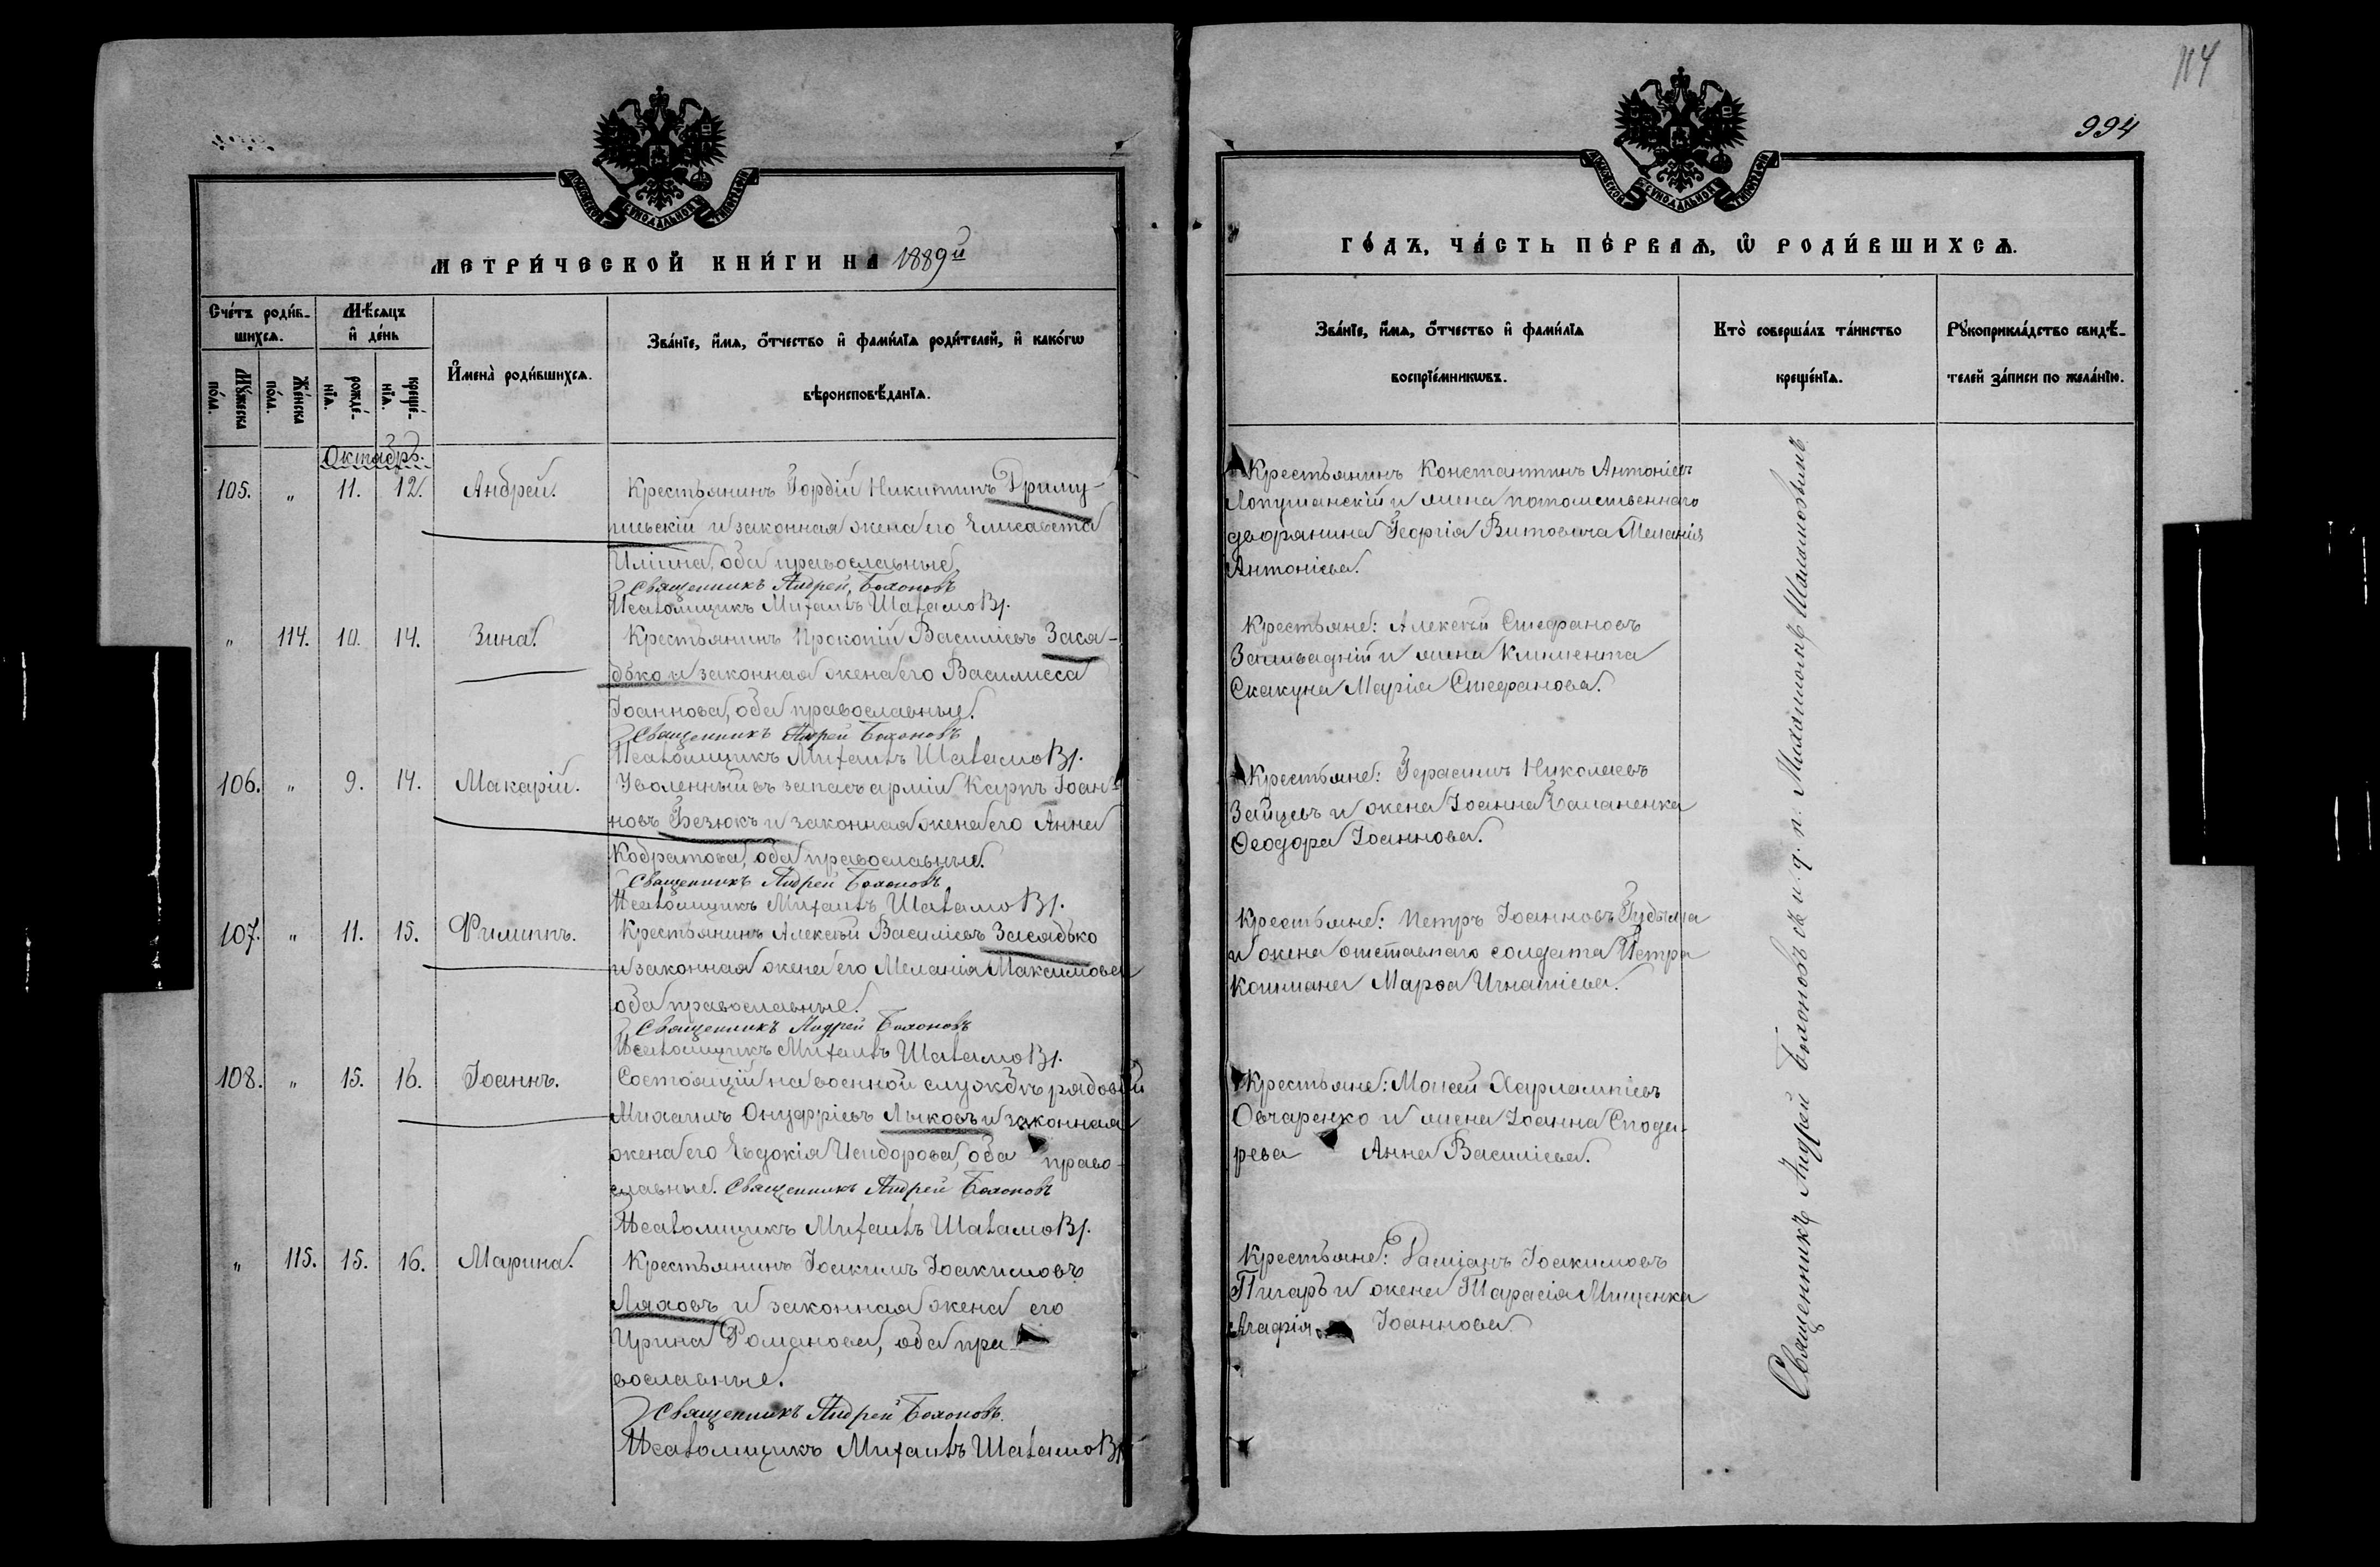 114
994
МОСКОВСКОЙ СѴНОДАЛЬНОЙ ТИПОГРАФІИ
МОСКОВСКОЙ СѴНОДАЛЬНОЙ ТИПОГРАФІИ
МЕТРИ́ЧЕСКОЙ КНИ́ГИ НА 1889й
ГО́ДЪ, ЧА́СТЬ ПЕ́РВАѦ, Ѡ҆ РОДИ́ВШИХСѦ.
Сче́тъ роди́в-
шихсѧ.
Мꙋ́жеска по́ла.
Же́нска по́ла.
Мѣ́сѧцъ
и҆ де́нь
рожде́-нїѧ.
креще́-нїѧ.
И҆мена̀ роди́вшихсѧ.
Зва́нїе, и҆́мѧ, ѻ҆́тчество и҆ фами́лїѧ роди́телей, и҆ како́гѡ
вѣроисповѣ́данїѧ.
Зва́нїе, и҆́мѧ, ѻ҆́тчество и҆ фами́лїѧ
воспрїе́мникѡвъ.
Кто̀ соверша́лъ та́инство
креще́нїѧ.
Рꙋкоприкла́дство свидѣ́-
телей за́писи по жела́нїю.
Октябрь.
105. " 11. 12. Андрей.
Крестьянинъ Гордій Никитинъ
и законная жена его Елисавета
Иліина, оба православные.
Священникъ Андрей Бѣлоновъ
Псаломщикъ Михаилъ
Крестьянинъ Константинъ Антоніевъ
Лопушанскій и жена потомственнаго
дворянина Георгія Витовича Меланія
Антоніева.
" 114. 10. 14. Зина.
Крестьянинъ Прокопій Василіевъ Зася-
дько и законная жена его Василисса
Іоаннова, оба православные.
Священникъ Андрей Бѣлоновъ
Псаломщикъ Михаилъ
Крестьяне: Алексѣй Стефановъ
и жена Климента
Скакуна Марія Стефанова.
106. " 9. 14. Макарій.
Уволенный въ запасъ арміи Карпъ Іоан-
новъ Безюкъ и законная жена его Анна
Кодратова, оба православные.
Священникъ Андрей Бѣлоновъ
Псаломщикъ Михаилъ
Крестьяне: Герасимъ Николаевъ
Зайцевъ и жена Іоанна
Ѳеодора Іоаннова.
107. " 11. 15. Филиппъ.
Крестьянинъ Алексѣй Василіевъ Засядько
и законная жена его Меланія Максимова
оба православные.
Священникъ Андрей Бѣлоновъ
Псаломщикъ Михаилъ
Крестьяне: Петръ Іоанновъ Гудыма
и жена отставнаго солдата Петра
Кошмана Марѳа Игнатіева.
108. " 15. 16. Іоаннъ.
Состоящій на военной службѣ рядовый
Михаилъ Онуфріевъ Лыковъ и законная
жена его Евдокія Исидорова, оба право-
славные. Священникъ Андрей Бѣлоновъ
Псаломщикъ Михаилъ
Крестьяне: Моисей Харлампіевъ
Овчаренко и жена Іоанна Спода-
рева Анна Василіева.
" 115. 15. 16. Марина.
Крестьянинъ Іоакимъ Іоакимовъ
Ляховъ и законная жена его
Ирина Романова, оба пра-
вославные.
Священникъ Андрей Бѣлоновъ.
Псаломщикъ Михаилъ
Крестьяне: Даміанъ Іоакимовъ
Пигаръ и жена Тарасія Мищенка
Агафія Іоаннова.
Священникъ Андрей Бѣлоновъ съ и. д. п. Михаиломъ